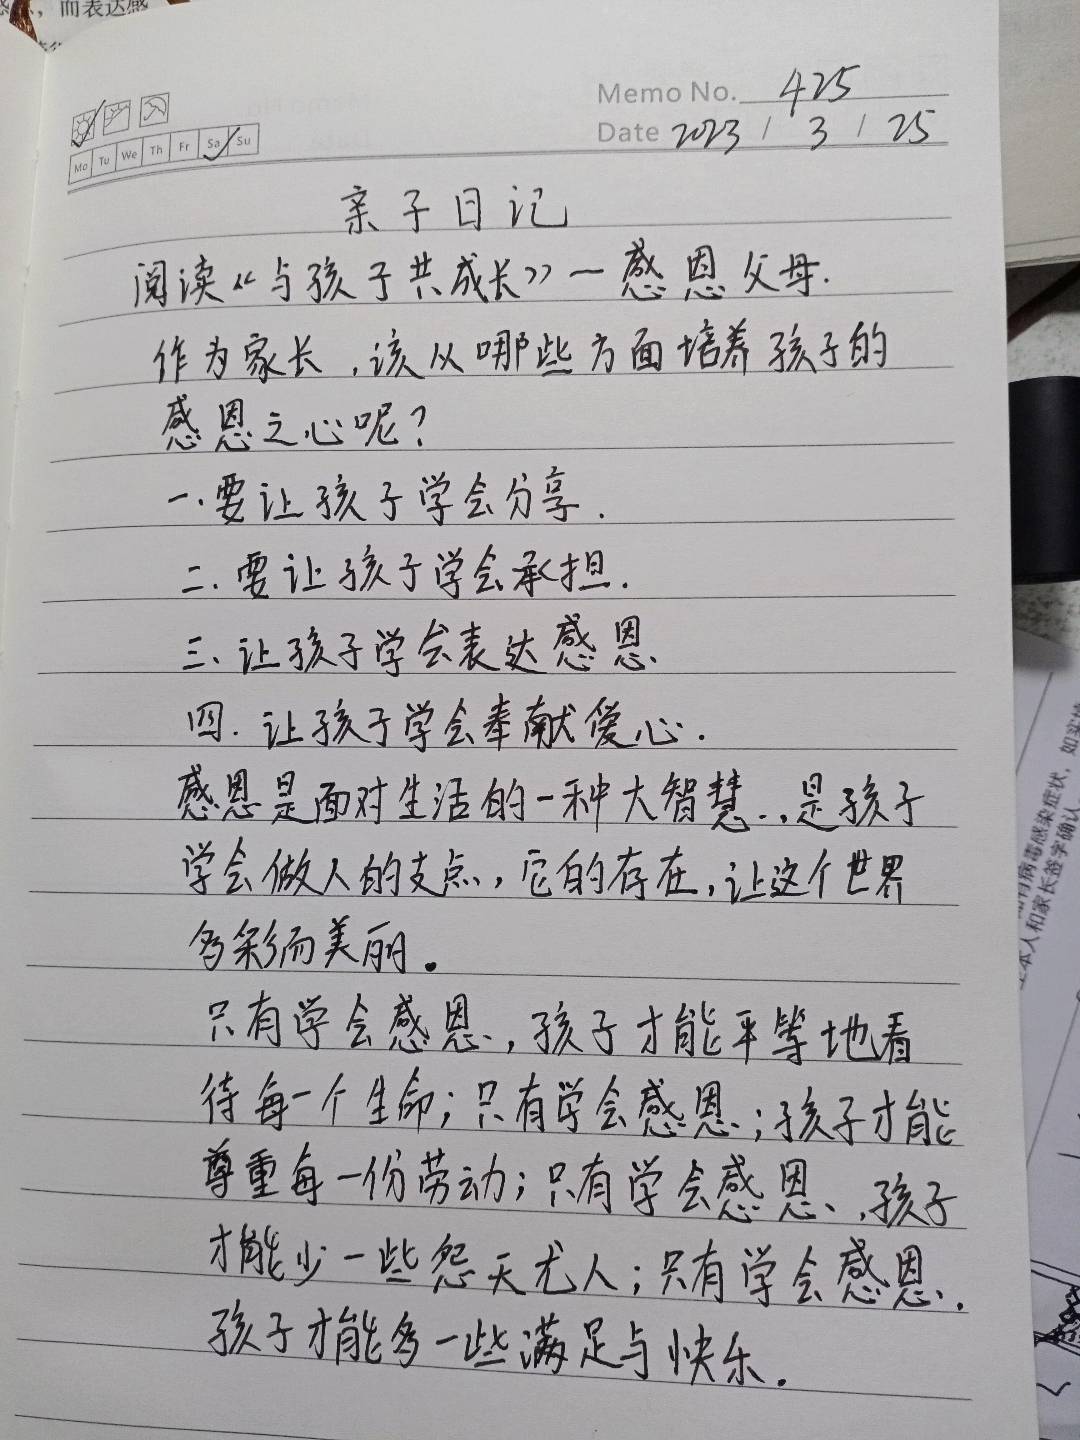 而表达感
Memo No. 425
Date 2023 / 3 / 25
Mo Tu We Th Fr Sa Su
亲子日记
阅读《与孩子共成长》一感恩父母.
作为家长,该从哪些方面培养孩子的
感恩之心呢?
一.要让孩子学会分享.
二.要让孩子学会承担.
三、让孩子学会表达感恩
四.让孩子学会奉献爱心.
感恩是面对生活的一种大智慧.,是孩子
学会做人的支点,它的存在,让这个世界
多彩而美丽。
只有学会感恩,孩子才能平等地看
待每一个生命;只有学会感恩;孩子才能
尊重每一份劳动;只有学会感恩、,孩子
才能少一些怨天尤人;只有学会感恩,
孩子才能多一些满足与快乐.
病毒感染症状,如实
本人和家长签字确认